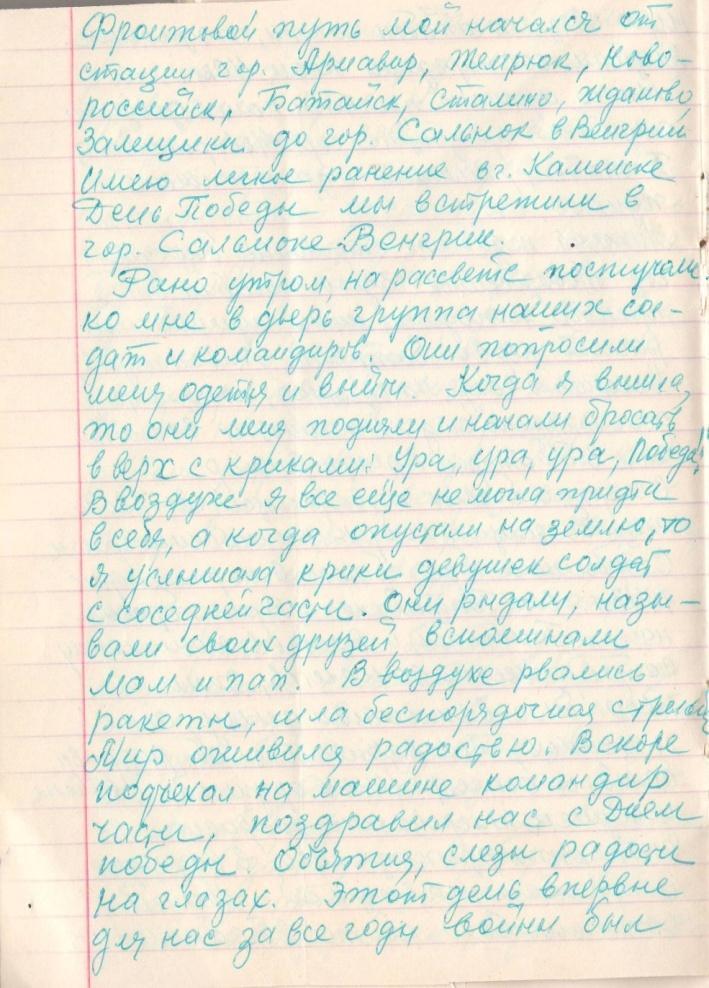 Фронтовой путь мой начался от
стации гор. Армавир, Темрюк, Ново-
российск, Батайск, Сталино, Жданово,
Залещики до гор. Сальнок в Венгрии
Имею легкое ранение в г. Каменске
День Победы мы встретили в
гор. Сальноке-Венгрии.
Рано утром, на рассвете постучали
ко мне в дверь группа наших сол-
дат и командиров. Они попросили
меня одется и выйти. Когда я вышла,
то они меня подняли и начали бросать
в верх с криками: Ура, ура, ура, Победа!
В воздухе я все еще не могла придти
в себя, а когда опустили на землю, то
я услышала крики девушек солдат
с соседней части. Они рыдали, назы-
вали своих друзей, вспоминали
мам и пап. В воздухе рвались
ракеты, шла беспорядочная
Мир оживился радостью. Вскоре
подъехал на машине командир
части, поздравил нас с Днем
победы. Объятия, слезы радости
на глазах. Этот день впервые
для нас за все годы войны был